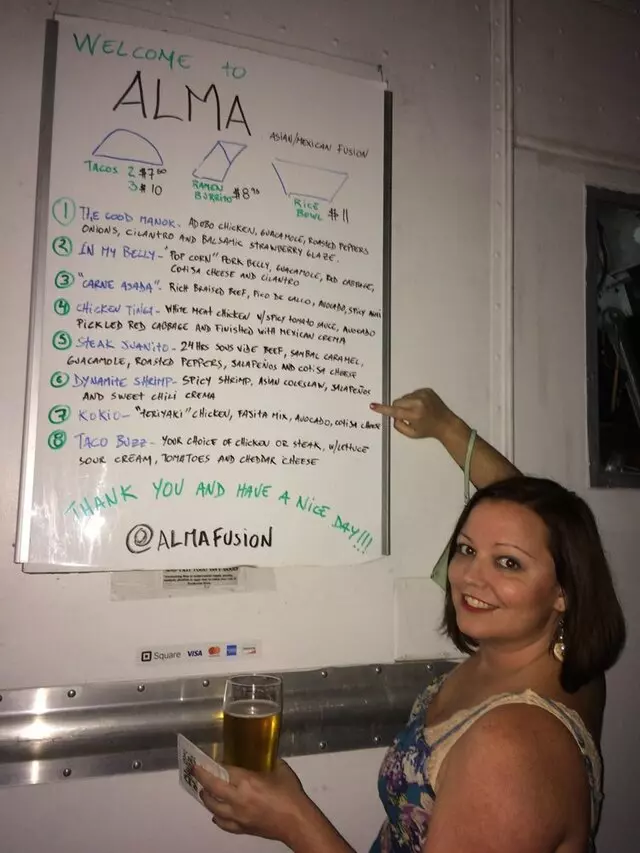 WELCOME TO
ALMA
ASIAN/MEXICAN FUSION
TACOS 2 $7.50
3 $10
RAMEN BURRITO $8
RICE BOWL $11
1 THE GOOD MANOK - ADOBO CHICKEN, GUACAMOLE, ROASTED PEPPERS
ONIONS, CILANTRO AND BALSAMIC STRAWBERRY GLAZE.
2 IN MY BELLY - "POP CORN" PORK BELLY, GUACAMOLE, RED CABBAGE,
COTISA CHEESE AND CILANTRO
3 "CARNE ASADA". RICH BRAISED BEEF, PICO DE GALLO, AVOCADO, SPICY
4 CHICKEN TINGA - WHITE MEAT CHICKEN W/SPICY TOMATO SAUCE, AVOCADO
PICKLED RED CABBAGE AND FINISHED WITH MEXICAN CREMA
5 STEAK JUANITO - 24HRS SOUS VIDE BEEF, SAMBAL CARAMEL,
GUACAMOLE, ROASTED PEPPERS, JALAPEÑOS AND COTISA CHEESE
6 DYNAMITE SHRIMP - SPICY SHRIMP, ASIAN COLESLAW, JALAPEÑOS
AND SWEET CHILI CREMA
7 KOKIO - "TERIYAKI" CHICKEN, FAJITA MIX, AVOCADO, COTISA CHEESE
8 TACO BUZZ - YOUR CHOICE OF CHICKEN OR STEAK, W/LETTUCE
SOUR CREAM, TOMATOES AND CHEDDAR CHEESE
THANK YOU AND HAVE A NICE DAY!!!
@ALMAFUSION
Square VISA